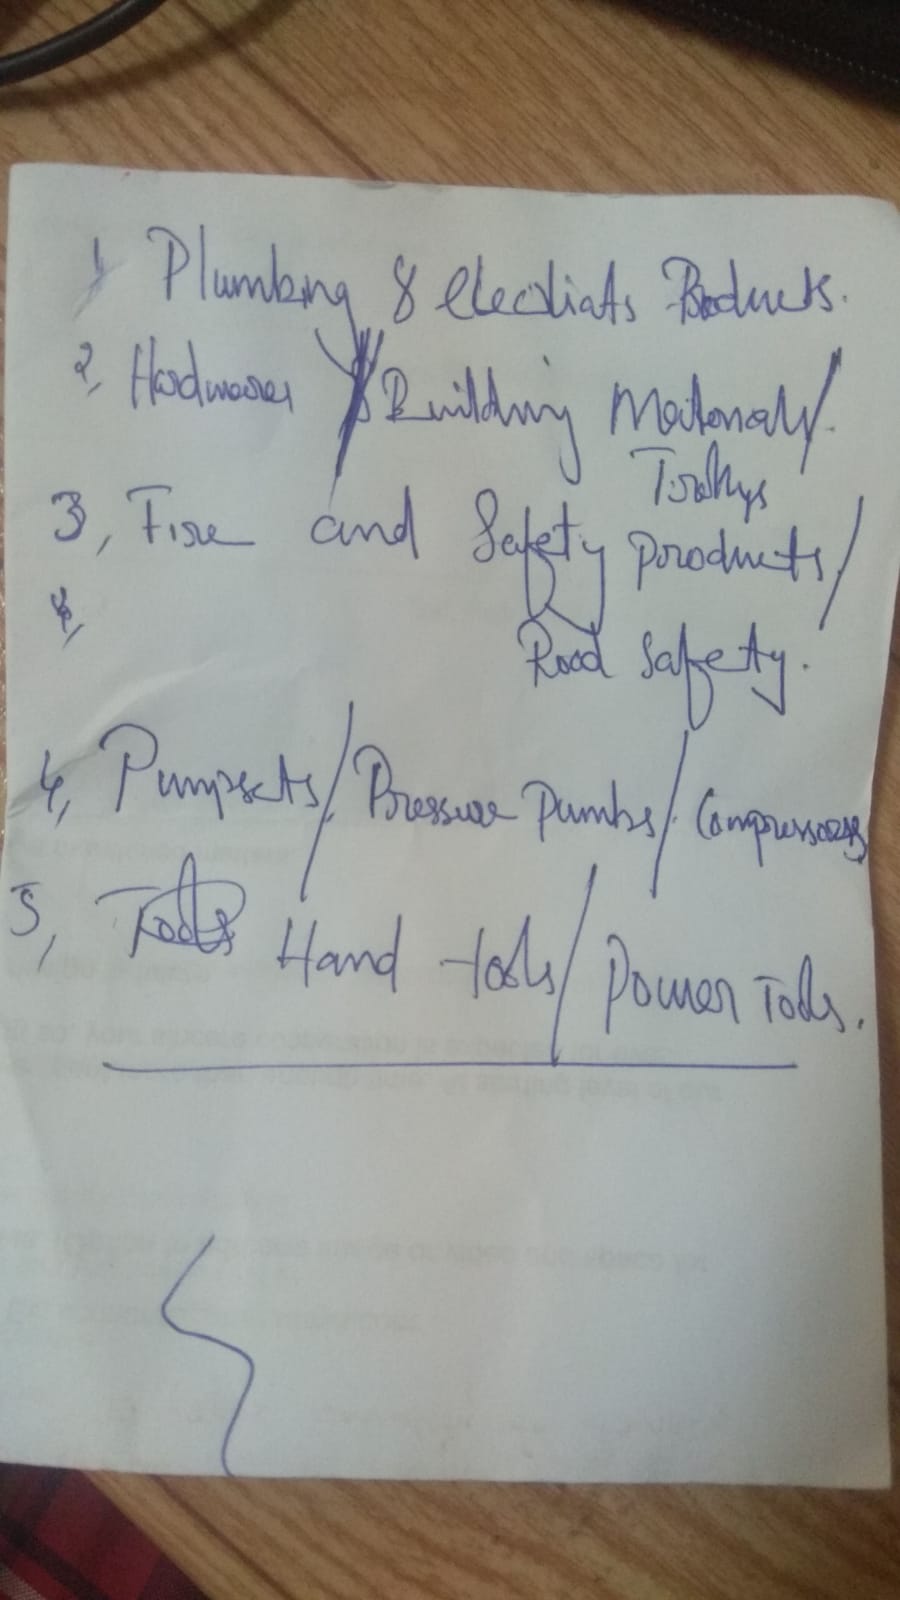 1, Plumbing & Electricals Products.
2, Hardwares / Building Materials/
Trollys
3, Fire and Safety Products/
4,
Road Safety.
4, Pumpsets/ Pressure Pumbs/ Compressors
5, Tools Hand tools/ Power Tools.